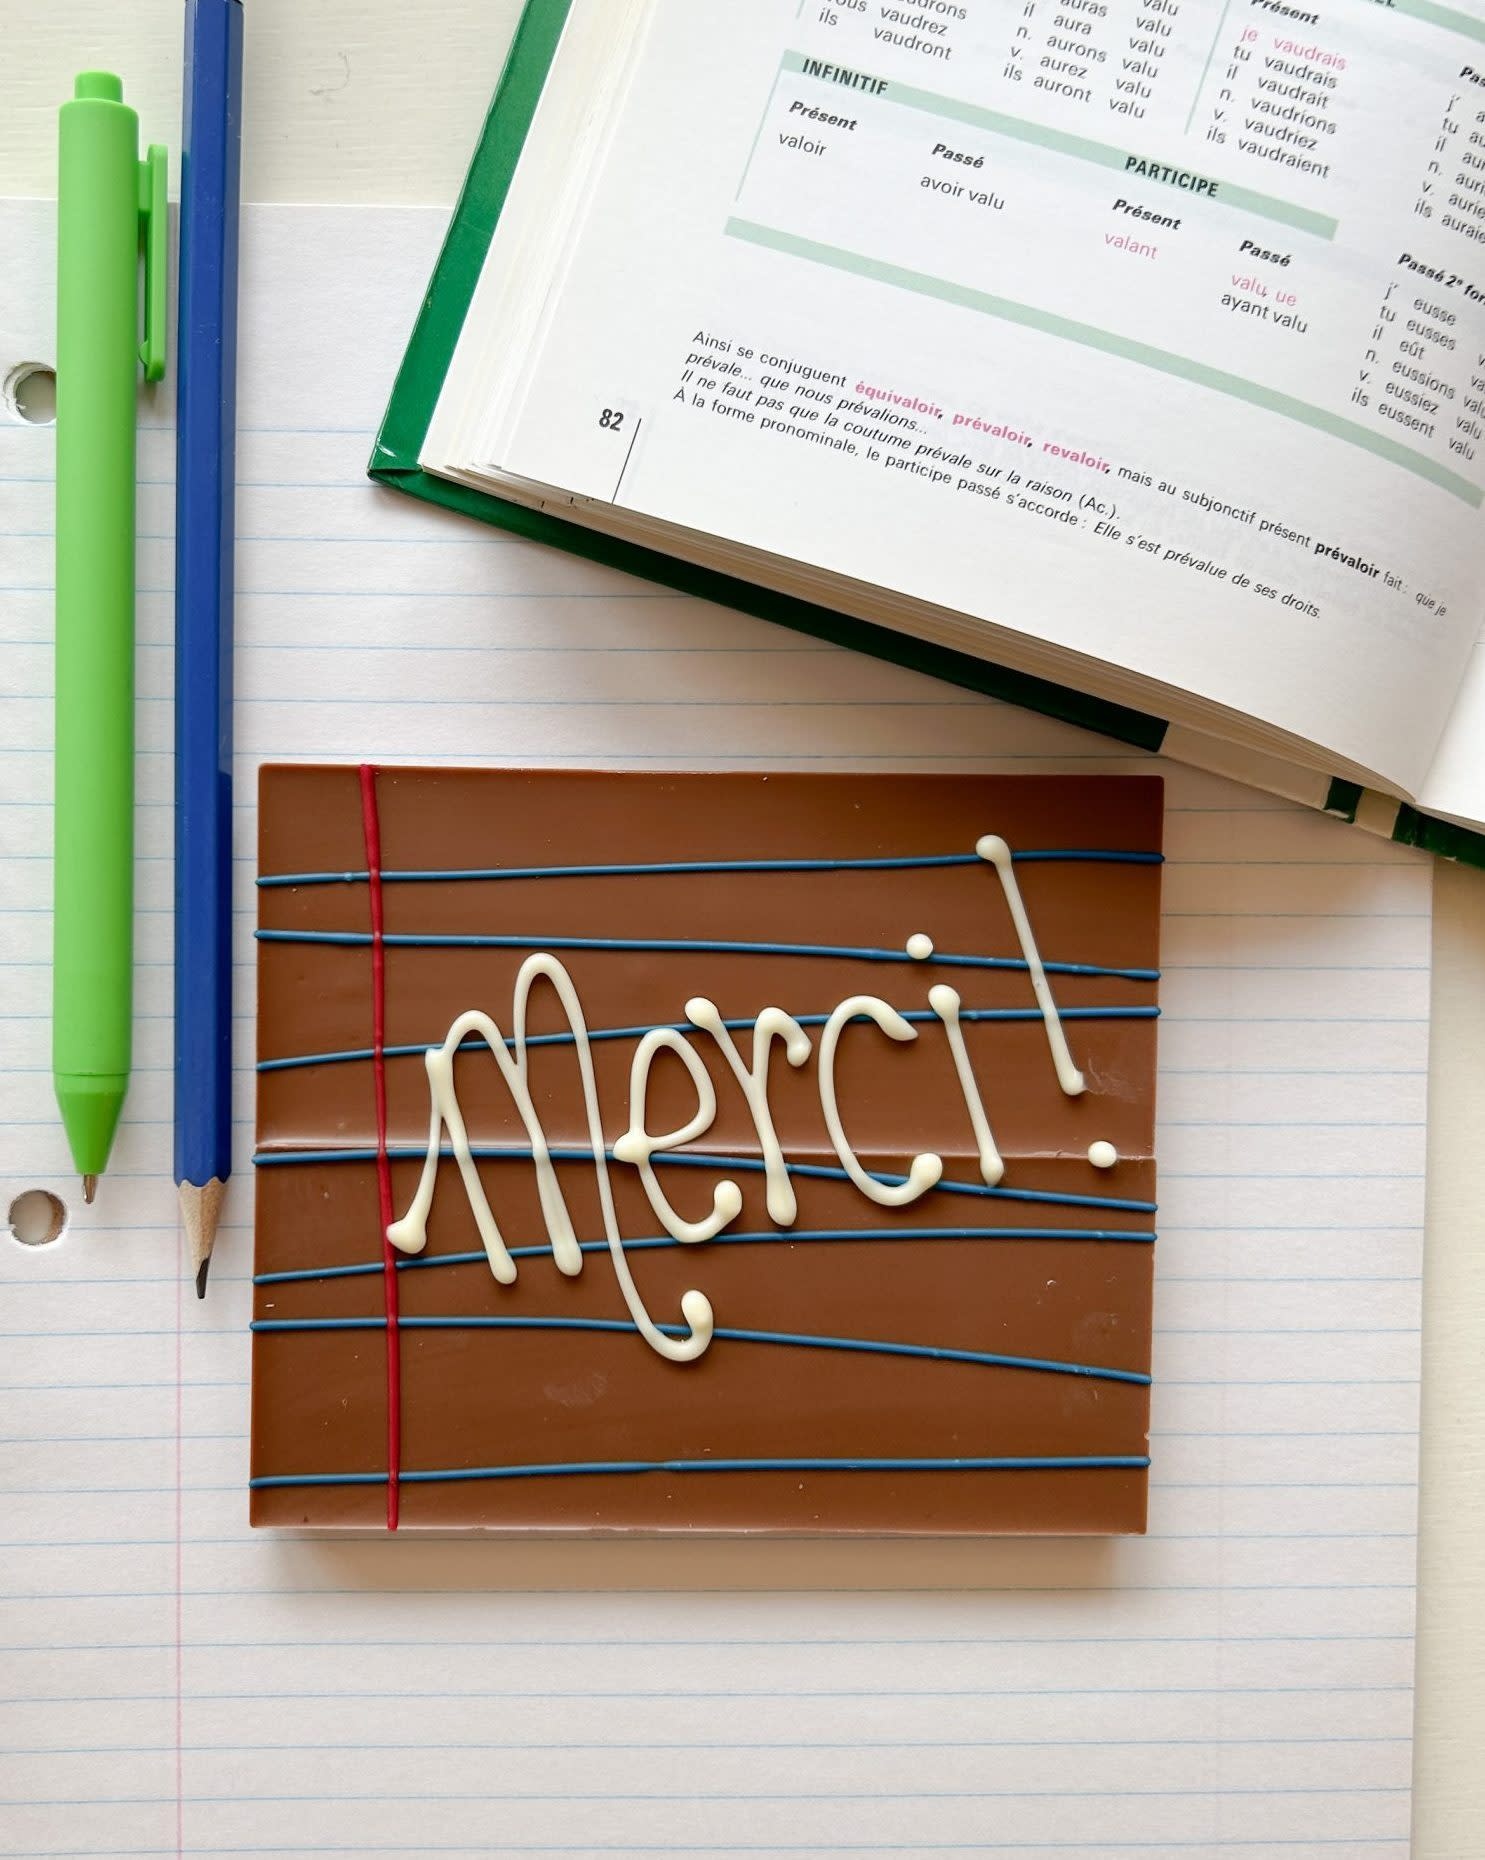 vaudrez
ils vaudront
auras valu
il aura valu
n. aurons valu
v. aurez valu
ils auront valu
Présent
je vaudrais
tu vaudrais
il vaudrait
n. vaudrions
v. vaudriez
ils vaudraient
INFINITIF
Présent
valoir
Passé
avoir valu
PARTICIPE
Présent
valant
Passé
valu, ue
ayant valu
j'
tu
il
n.
v.
ils
Passé 2e
j' eusse
tu eusses
il eût
n. eussions
v. eussiez valu
ils eussent valu
Ainsi se conjuguent équivaloir, prévaloir, revaloir, mais au subjonctif présent prévaloir fait : que je
prévale... que nous prévalions...
Il ne faut pas que la coutume prévale sur la raison (Ac.).
À la forme pronominale, le participe passé s'accorde : Elle s'est prévalue de ses droits.
82
Merci!